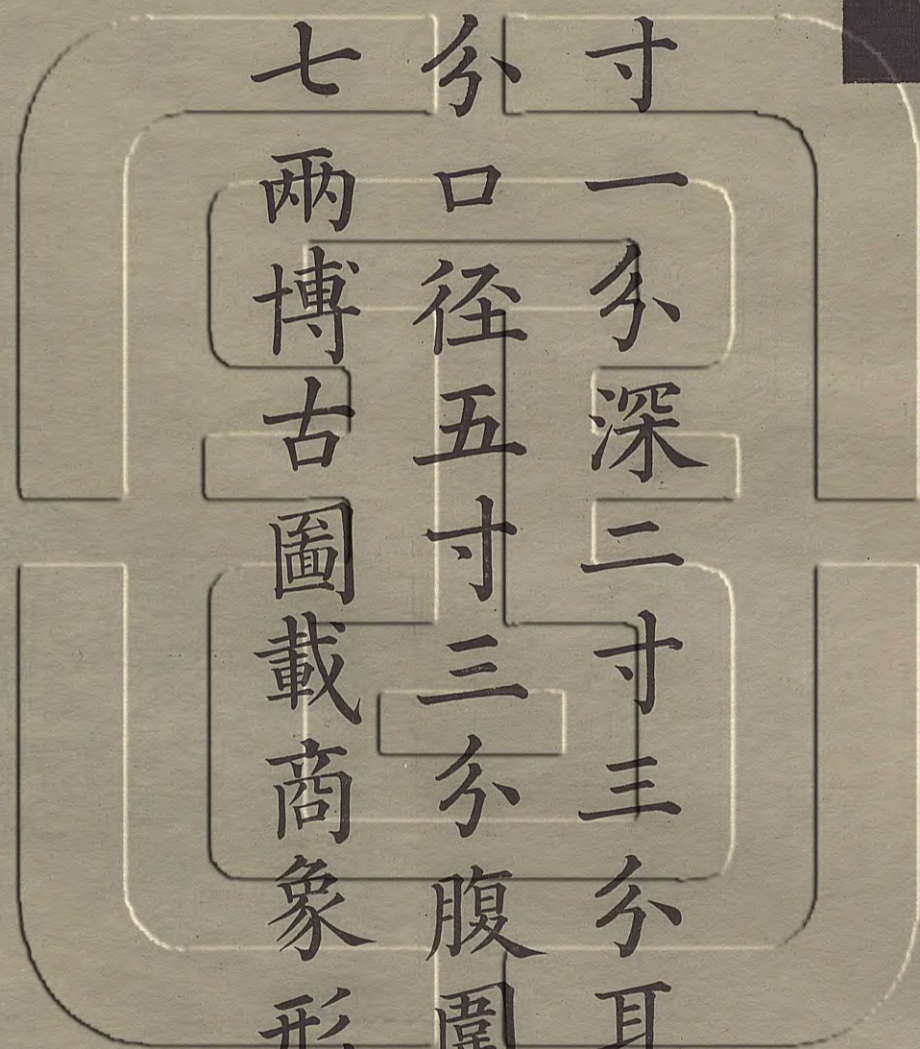 寸一分深二寸三分耳
分口徑五寸三分腹圍
七兩博古圖載商象形